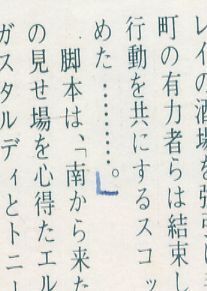 レイの酒場を強引に
町の有力者らは結束し
行動を共にするスコッ
めた………。
脚本は、「南から来た
の見せ場を心得たエル
ガスタルディとトニー